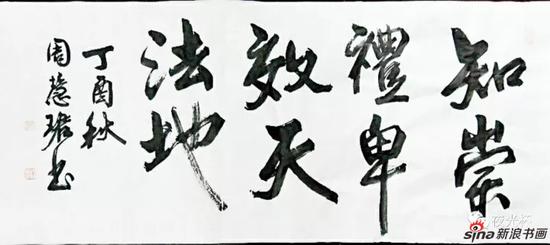 知崇
禮卑
效天
法地
丁酉秋
周慧珺书
夜光杯
sina新浪书画